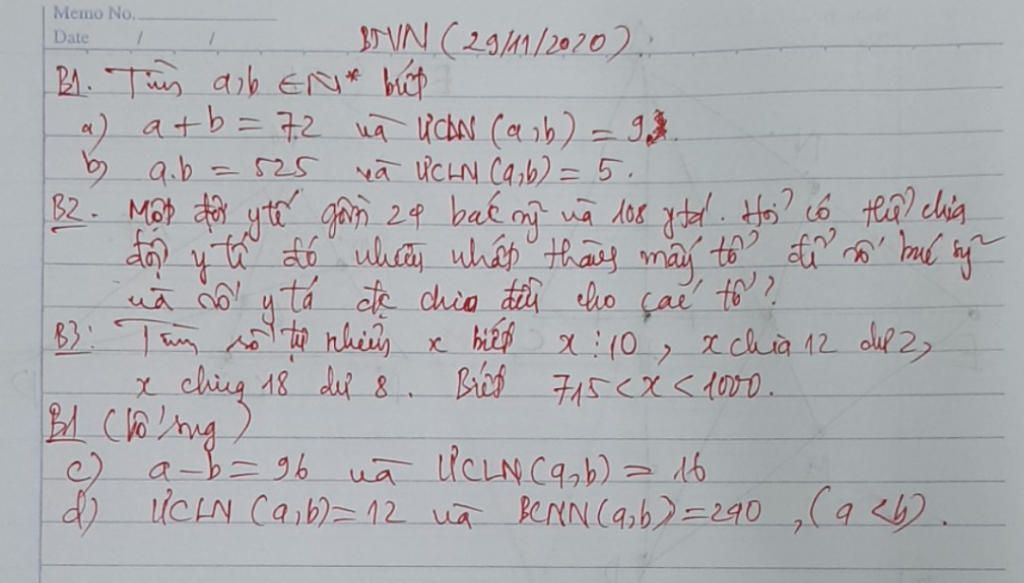 Memo No.
Date / /
BTVN (29/11/2020).
B1. Tìm a,b ∈ N* biết
a) a + b = 72 và ƯCLN (a,b) = 9
b) a.b = 525 và ƯCLN (a,b) = 5.
B2. Một đội y tế gồm 24 bác sỹ và 108 y tá. Hỏi có thể chia
đội y tế đó nhiều nhất thành mấy tổ để số bác sỹ
và số y tá đc chia đều cho các tổ?
B3: Tìm số tự nhiên x biết x ⋮ 10, x chia 12 dư 2,
x chia 18 dư 8. Biết 715 < x < 1000.
B1 (bổ sung)
c) a - b = 96 và ƯCLN(a,b) = 16
d) ƯCLN (a,b) = 12 và BCNN(a,b) = 240, (a < b).